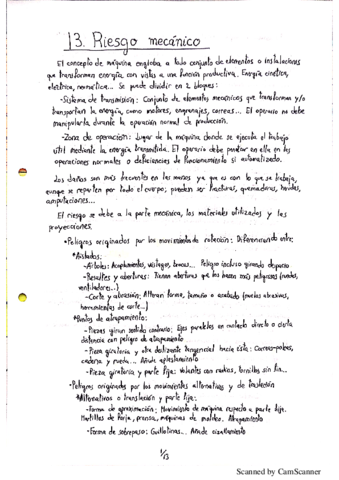 13. Riesgo mecánico
El concepto de máquina engloba a todo conjunto de elementos o instalaciones
que transforman energía con vistas a una función productiva. Energía cinética,
eléctrica, neumática... Se puede dividir en 2 bloques:
-Sistema de transmisión: Conjunto de elementos mecánicos que transforman y/o
transportan la energía, como motores, engranajes, correas... El operario no debe
manipularla durante la operación normal de producción.
-Zona de operación: Lugar de la máquina donde se ejecuta el trabajo
útil mediante la energía transmitida. El operario debe penetrar en ella en las
operaciones normales o deficiencias de funcionamiento si automatizado.
Los daños son más frecuentes en las manos ya que es con lo que se trabaja,
aunque se reparten por todo el cuerpo; pueden ser fracturas, quemaduras, heridas,
amputaciones...
El riesgo se debe a la parte mecánica, los materiales utilizados y las
proyecciones.
*Peligros originados por los movimientos de rotación: Diferenciando entre:
*Aislados:
-Árboles: Acoplamientos, vástagos, brocas... Peligro incluso girando despacio
-Resaltes y aberturas: Tienen aberturas que los hacen más peligrosos (ruedas,
ventiladores...)
-Corte y abrasión: Alteran forma, tamaño o acabado (muelas abrasivas,
herramientas de corte...)
*Puntos de atrapamiento:
-Piezas giran sentido contrario: Ejes paralelos en contacto directo o cierta
distancia con peligro de atrapamiento
-Pieza giratoria y otra deslizante tangencial hacia ésta: Correas-poleas,
cadena y rueda... Añade aplastamiento
-Pieza giratoria y parte fija: Volantes con radios, tornillos sin fin...
*Peligros originados por los movimientos alternativos y de traslación
*Alternativos o traslación y parte fija:
-Forma de aproximación: Movimiento de máquina respecto a parte fija.
Martillos de forja, prensa, máquinas de moldeo. Atrapamiento
-Forma de sobrepaso: Guillotinas... Añade cizallamiento
1/13
Scanned by CamScanner